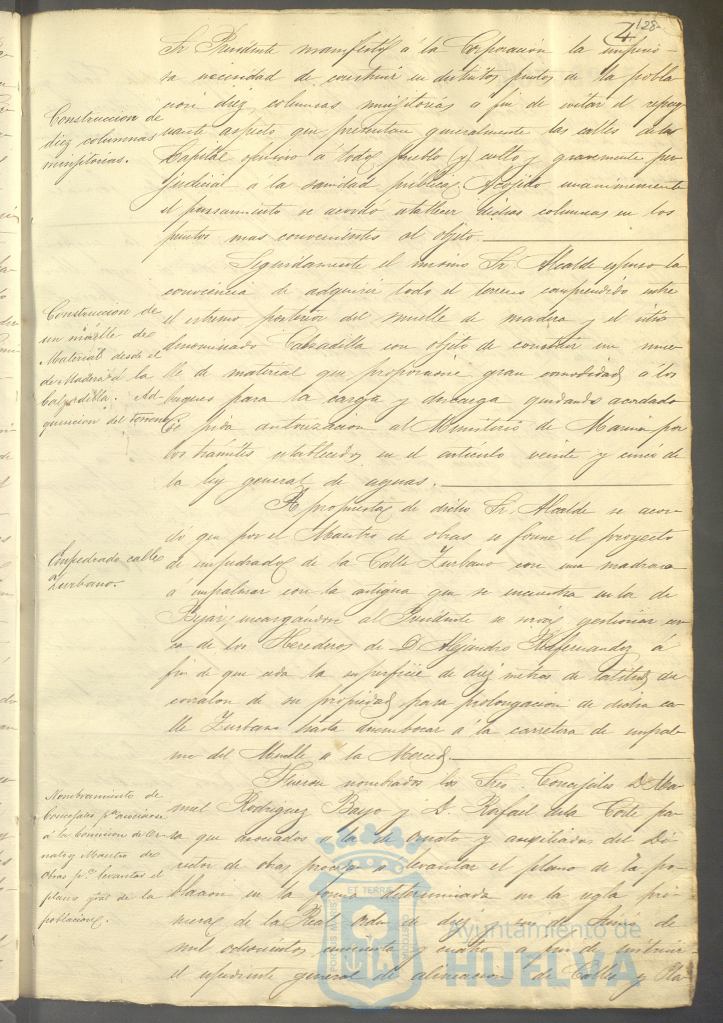 4 128
Sr. Presidente manifestó á la Corporación la imperio-
sa necesidad de construir en distintos puntos de la pobla
cion diez columnas mingitorias a fin de evitar el repug
nante aspecto que presentan generalmente las calles de la
Capital opuesto á todo pueblo culto y gravemente per
judicial a la sanidad publica. Acojido unanimemente
el pensamiento se acordó establecer dichas columnas en los
puntos mas convenientes al objeto.
Construccion de
diez columnas
mingitorias.
Seguidamente el mismo Sr. Alcalde espuso la
conveniencia de adquirir todo el terreno comprendido entre
el estremo posterior del muelle de madera y el sitio
denominado Calzadilla con objeto de construir un mue
lle de material que proporcione gran comodidad á los
buques para la carga y descarga quedando acordado
se pida autorizacion al Ministerio de Marina por
los trámites establecidos en el articulo veinte y cinco de
la ley general de aguas.
Construccion de
un muelle de
Material desde el
de Madera á la
Calzadilla. Ad-
quisicion del terreno.
A propuesta de dicho Sr. Alcalde se acor
dó que por el Maestro de obras se forme el proyecto
de empedrado de la Calle Zurbano con una madrona
á empalmar con la antigua que se encuentra en la de
Bejar, encargándose al Presidente se sirva gestionar cer
ca de los Herederos de D. Alejandro
fin de que ceda la superficie de diez metros de latitud del
corralon de su propiedad para prolongacion de dicha ca
lle Zurbano hasta desembocar á la carretera de empal
me del Muelle a la Merced.
Empedrado calle
Zurbano.
Fueron nombrados los Sres. Concejales D. Ma
nuel Rodriguez Bayo y D. Rafael de la Corte pa
ra que asociados a la de Ornato y auxiliados del Di
rector de obras procedan a levantar el plano de la po
blacion en la forma determinada en la regla pri
mera de la Real Orden de diez y de
mil ochocientos cincuenta y cuatro a fin de instruir
el espediente general de alineacion de Calles y Pla
Nombramiento de
Concejales pª asociarse
á la Comision de Or-
nato y Maestro de
Obras pª levantar el
plano gral de la
poblacion.
Ayuntamiento de
HUELVA